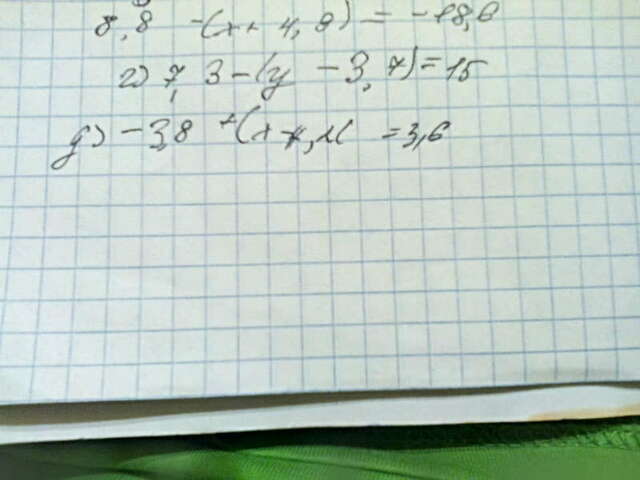 8,8 -(x+ 4,9) = -18,6
г) 7,3-(y -3,7)=15
д) -3,8 +(x = 3,6